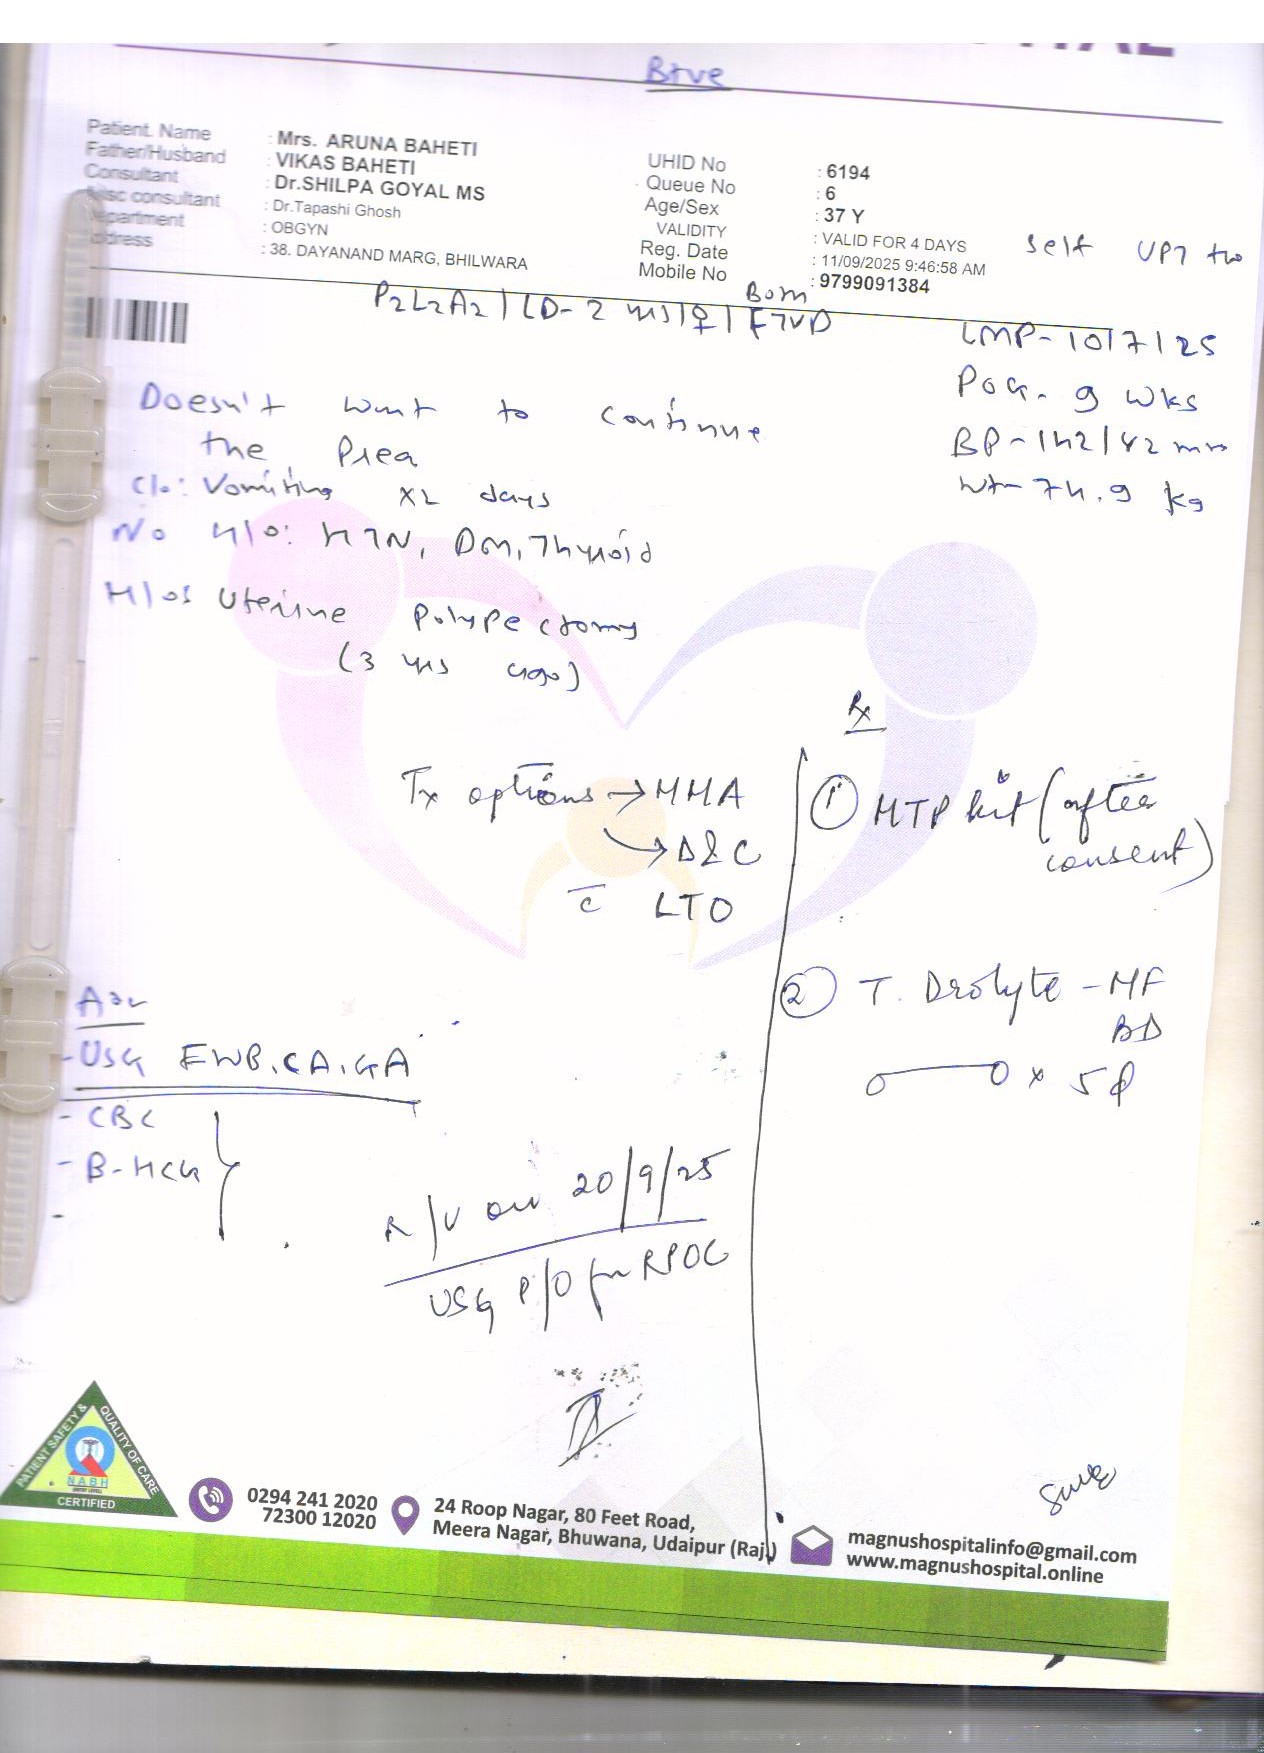 B+ve
Patient. Name : Mrs. ARUNA BAHETI
Father/Husband : VIKAS BAHETI
Consultant : Dr.SHILPA GOYAL MS
Misc consultant : Dr.Tapashi Ghosh
Department : OBGYN
Address : 38. DAYANAND MARG, BHILWARA
UHID No : 6194
Queue No : 6
Age/Sex : 37 Y
VALIDITY : VALID FOR 4 DAYS
Reg. Date : 11/09/2025 9:46:58 AM
Mobile No : 9799091384
Self UPT +ve
P2L2A2 | LD- 2 yrs | ♀ | FTVD
Both
LMP- 10/7/25
POG- 9 wks
mm
Wt- 74.9 kg
Doesn't want to continue
the
C/o: Vomiting days
No H/o: HTN, DM, Thyroid
H/o: Uterine Polypectomy
(3 yrs ago)
Tx options → MMA
→ D&C
c̄ LTO
Rx
① MTP kit (after
consent)
② T. Drolyte - MF
BD
0——0 x 5
Adv
- USG FWB, CA, GA
- CBC
- B-HCG
-
R/V on 20/9/25
USG for RPOC
PATIENT SAFETY & QUALITY OF CARE
NABH
CERTIFIED
0294 241 2020
72300 12020
24 Roop Nagar, 80 Feet Road,
Meera Nagar, Bhuwana, Udaipur (Raj.)
magnushospitalinfo@gmail.com
www.magnushospital.online